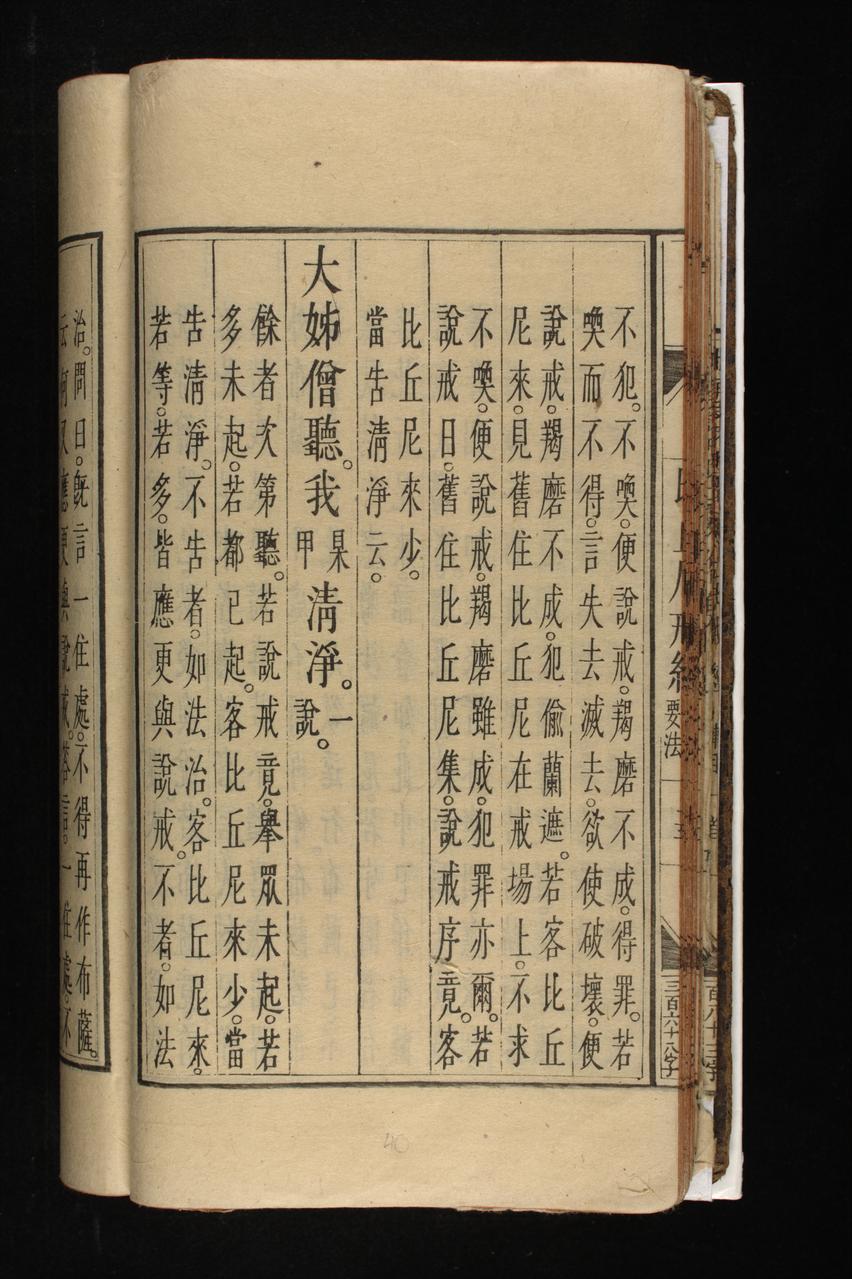 要法
三百六十八字
不犯。不喚。便說戒。羯磨不成。得罪。若
喚而不得。言失去滅去。欲使破壞。便
說戒。羯磨不成。犯偷蘭遮。若客比丘
尼來。見舊住比丘尼在戒場上。不求
不喚。便說戒。羯磨雖成。犯罪亦爾。若
說戒日。舊住比丘尼集。說戒序竟。客
比丘尼來少。
當告清淨云。
大姊僧聽。我某甲清淨。一說。
餘者次第聽。若說戒竟。舉眾未起。若
多未起。若都已起。客比丘尼來少。當
告清淨。不告者。如法治。客比丘尼來。
若等。若多。皆應更與說戒。不者。如法
治。問曰。既言一住處。不得再作布薩。
應更與說戒。答言。一住處。不